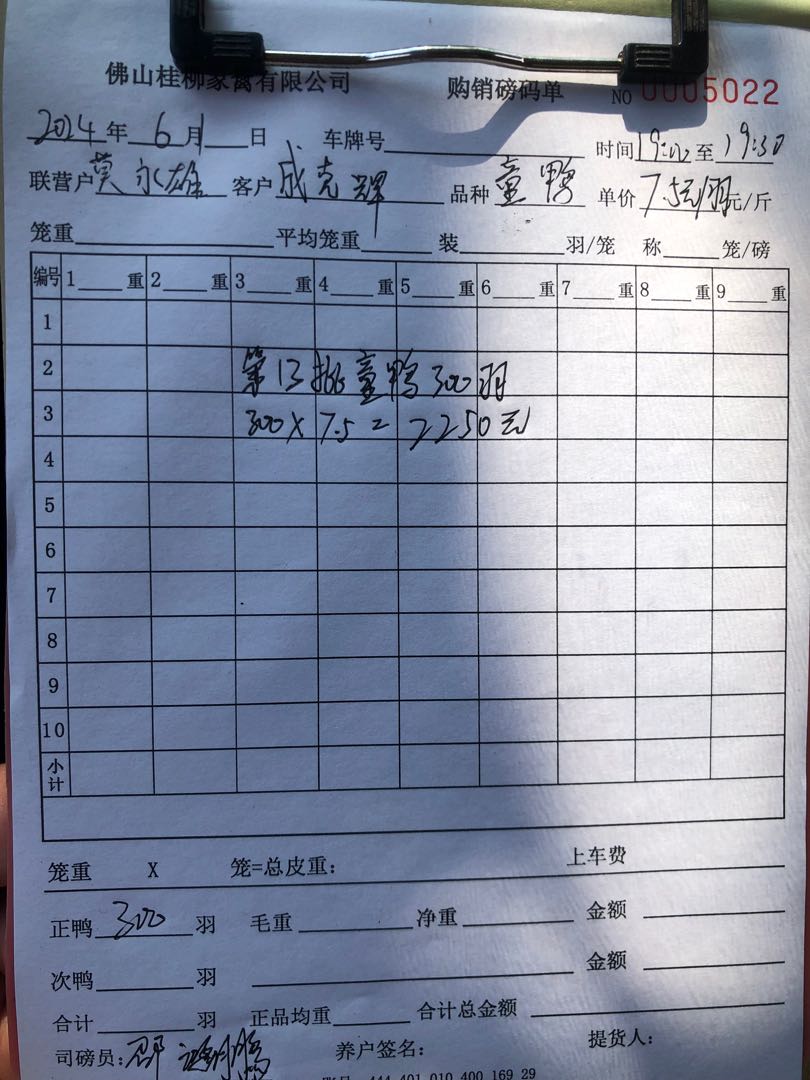 佛山桂柳家禽有限公司 购销磅码单 NO 0005022
2024年 6月1日 车牌号 时间19:00至19:30
联营户 莫永雄 客户 成克辉 品种 童鸭 单价 7.5元/羽元/斤
笼重 平均笼重 装 羽/笼 称 笼/磅
编号 1 重 2 重 3 重 4 重 5 重 6 重 7 重 8 重 9 重
1
2 第13批童鸭300羽
3 300×7.5=2250元
4
5
6
7
8
9
10
小计
笼重 X 笼=总皮重: 上车费
正鸭 300 羽 毛重 净重 金额
次鸭 羽 金额
合计 羽 正品均重 合计总金额
司磅员: 养户签名: 提货人:
444 401 010 400 169 29